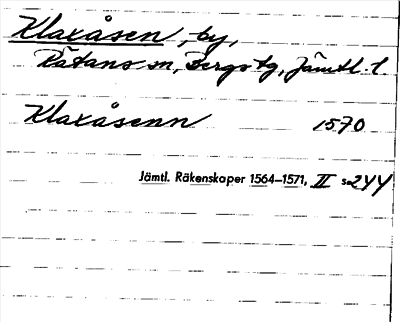 Klaxåsen, by,
Rätans sn, Bergs tg, Jämtl. l
Klaxåsenn 1570
Jämtl. Räkenskaper 1564–1571, II s. 244